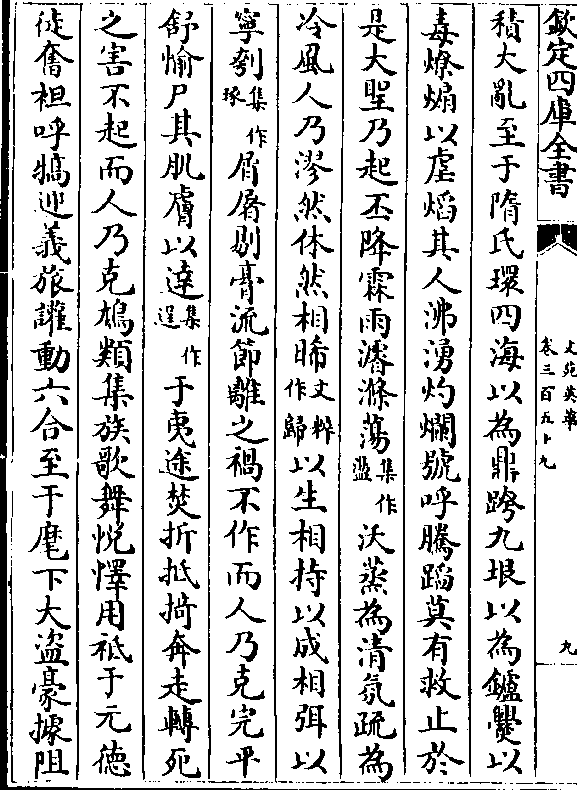 欽定四庫全書
文苑英華
卷三百五十九
九
積大亂至于隋氏環四海以為鼎跨九垠以為鑪爨以
毒燎煽以虐熖其人沸湧灼爛號呼騰蹈莫有救止於
是大聖乃起丕降霖雨濬滌蕩集作盪沃蒸為清氛疏為
冷風人乃漻然休然相睎文粹作歸以生相持以成相弭以
寧刳集作琢屠屠剔膏流節離之禍不作而人乃克完平
舒愉尸其肌膚以達集作逞于夷途焚折抵掎奔走轉死
之害不起而人乃克鳩類集族歌舞悦懌用祗于元德
徒奮袒呼犒迎義旅讙動六合至于麾下大盜豪據阻